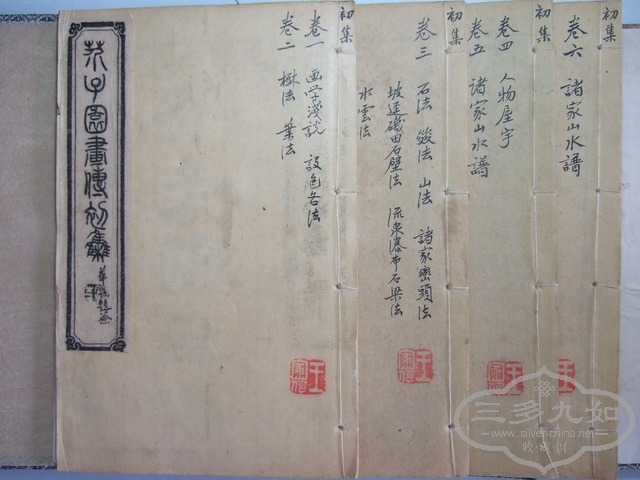 芥子園畫傳初集
初集
卷一 画学淺說 設色各法
卷二 樹法 葉法
初集
卷三 石法 皴法 山法 諸家巒頭法
坡逕磯田石壁法 流泉瀑布石梁法
水雲法
初集
卷四 人物屋宇
卷五 諸家山水譜
初集
卷六 諸家山水譜
三多九如
www.silver-china.net
收藏网